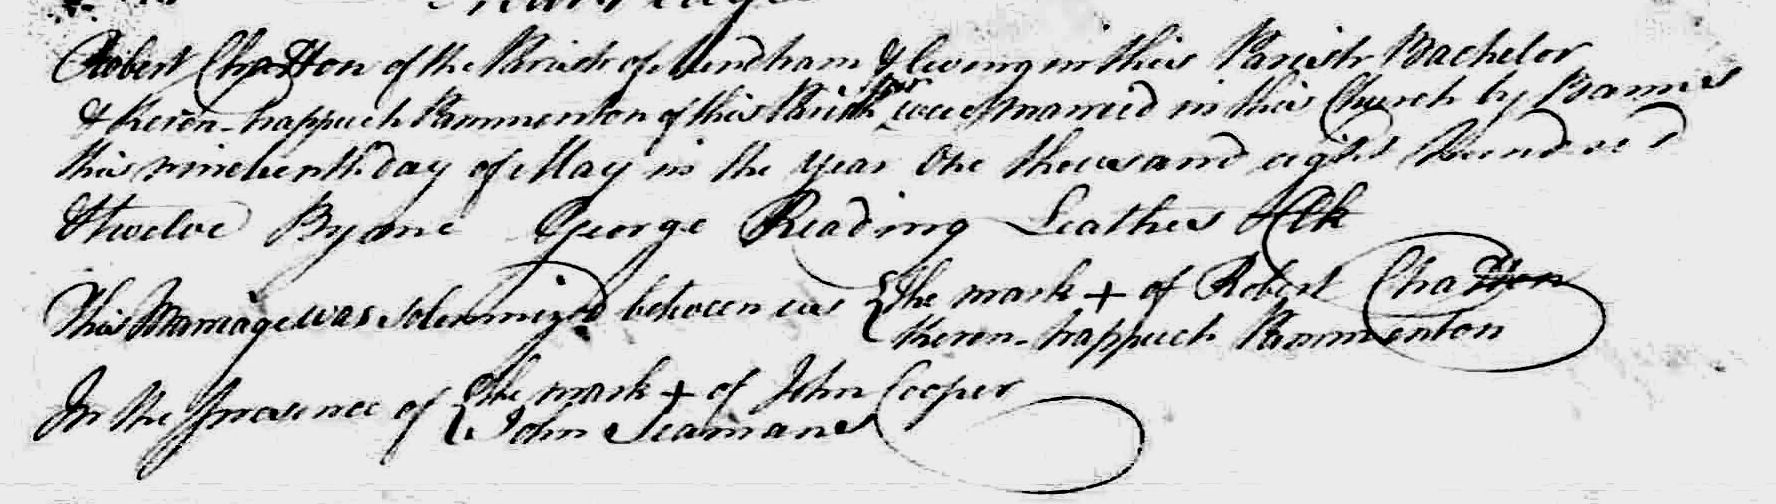 Robert Chatton of the Parish of Mendham & living in this Parish Bachelor
& Keren-happuch Pammenton of this Parish Spr were Married in this Church by Banns
this nineteenth day of May in the year One thousand eight hundred
& twelve By me George Reading Leathes Clk
This Marriage was solemnized between us { the mark + of Robert Chatton
Keren-happuch Pammenton
In the presence of { the mark + of John Cooper
John Seamans